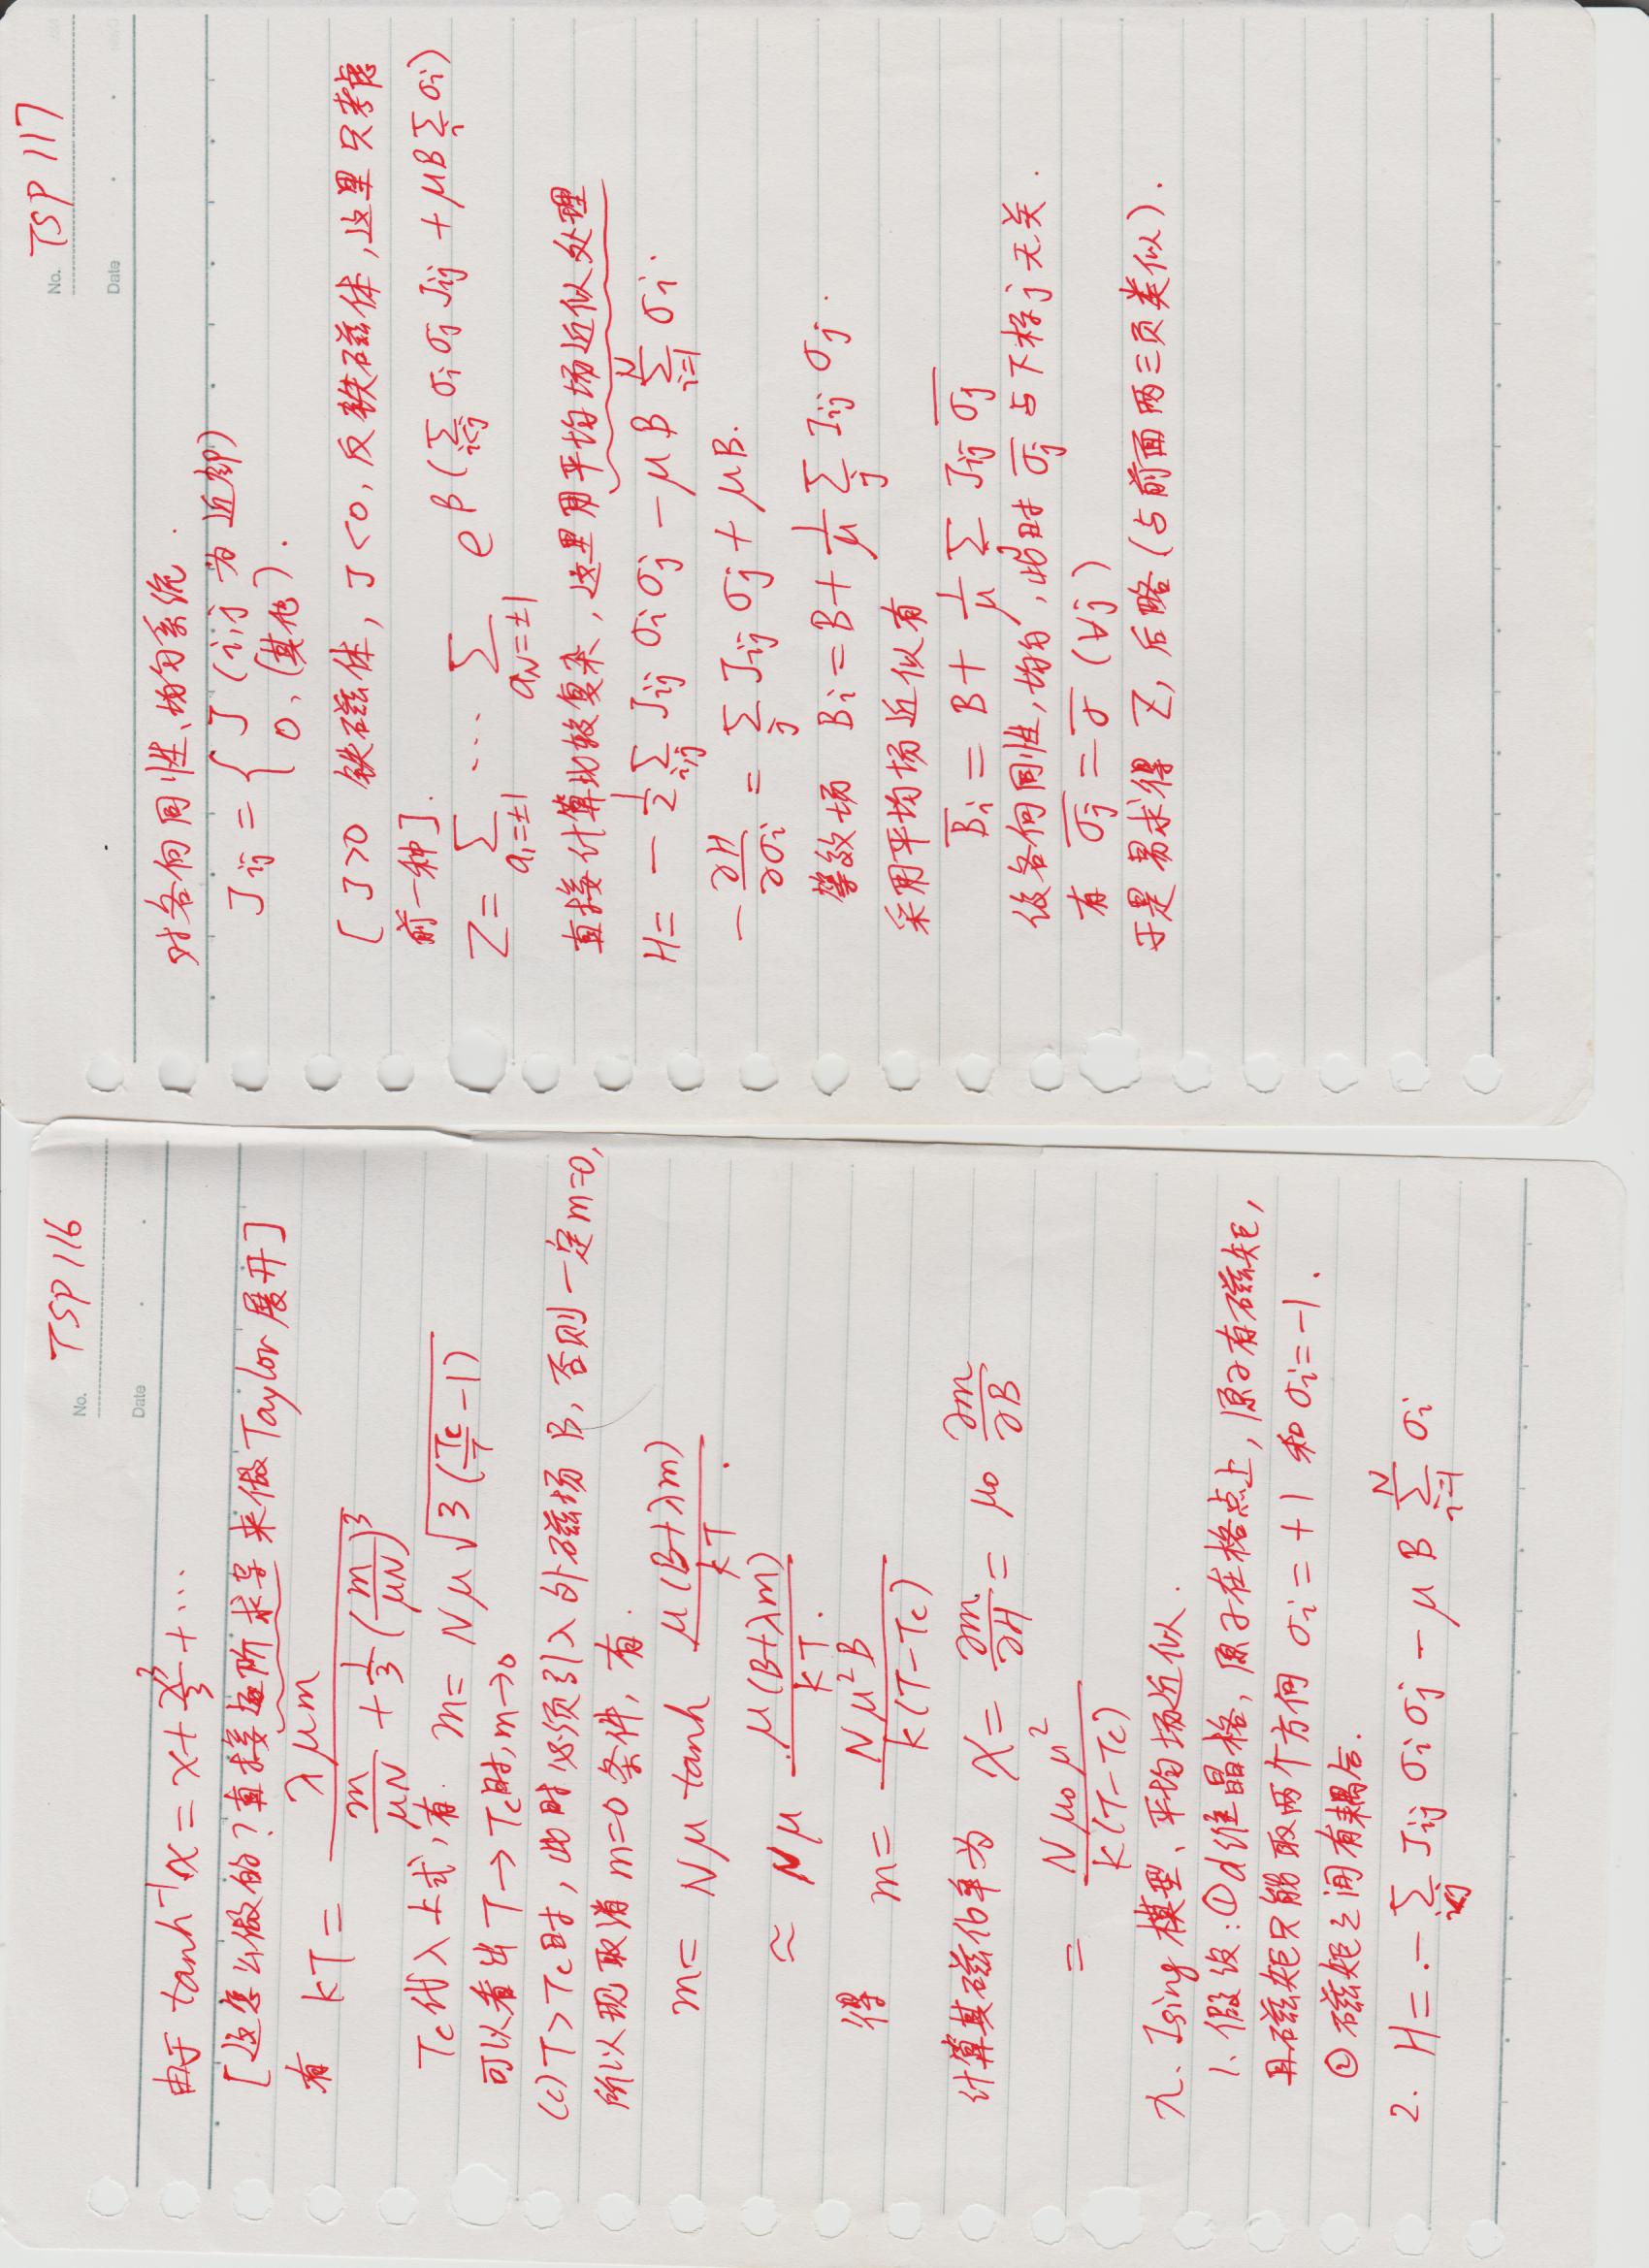 No. TSP 116
Date
由于 tanh⁻¹x = x + x³/3 + ⋯
[这怎么做的？直接逐阶求导来做Taylor展开]
有 kT = λμm / (m/(μN) + 1/3 (m/(μN))³)
Tc代入上式，有. m = Nμ√(3(Tc/T − 1))
可以看出 T→Tc时，m→0
(c) T>Tc时，此时必须引入外磁场B，否则一定m=0，
所以现取消 m=0 条件，有.
m = Nμ tanh μ(B+λm)/kT.
≈ Nμ μ(B+λm)/kT.
得 m = Nμ²B / k(T−Tc)
计算其磁化率为 χ = ∂m/∂H = μ₀ ∂m/∂B
= Nμ₀μ² / k(T−Tc)
九、Ising模型、平均场近似.
1、假设：①d维晶格，原子在格点上，原子有磁矩，
且磁矩只能取两个方向 σi = +1 和 σi = −1.
②磁矩之间有耦合.
2. H = −∑_{i<j} Jij σi σj − μB ∑_{i=1}^{N} σi
No. TSP 117
Date
对各向同性、均匀系统.
Jij = { J (i,j 为近邻)
0, (其他).
[J>0 铁磁体，J<0，反铁磁体，这里只考虑
前一种].
Z = ∑_{σ₁=±1} ⋯ ∑_{σN=±1} e^{β(∑_{i<j} σi σj Jij + μB ∑_i σi)}
直接计算比较复杂，这里用平均场近似处理
H = −1/2 ∑_{i,j} Jij σi σj − μB ∑_{i=1}^{N} σi.
−∂H/∂σi = ∑_j Jij σj + μB.
等效场 Bi = B + 1/μ ∑_j Jij σj.
采用平均场近似有
B̄i = B + 1/μ ∑_j Jij σ̄j
设各向同性，均匀，此时 σ̄j 与下标j无关.
有 σ̄j = σ̄ (∀j)
于是易求得 Z，后略(与前面两三页类似).